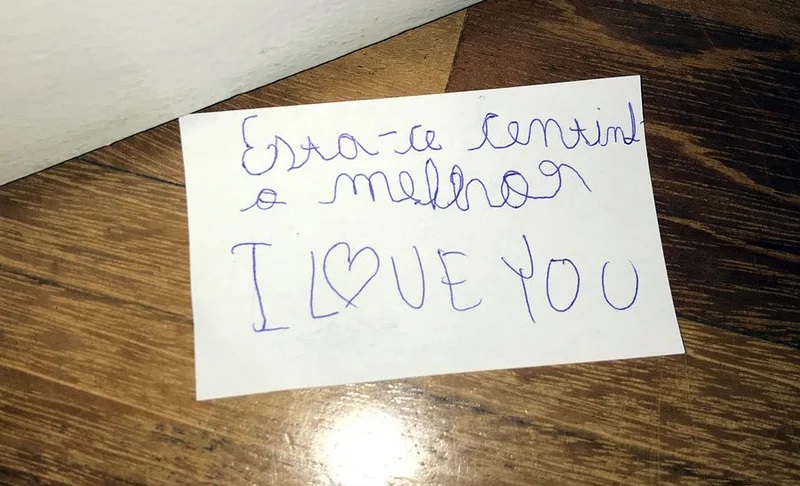 Esta-ce centind
o melhor
I L♡VE YOU